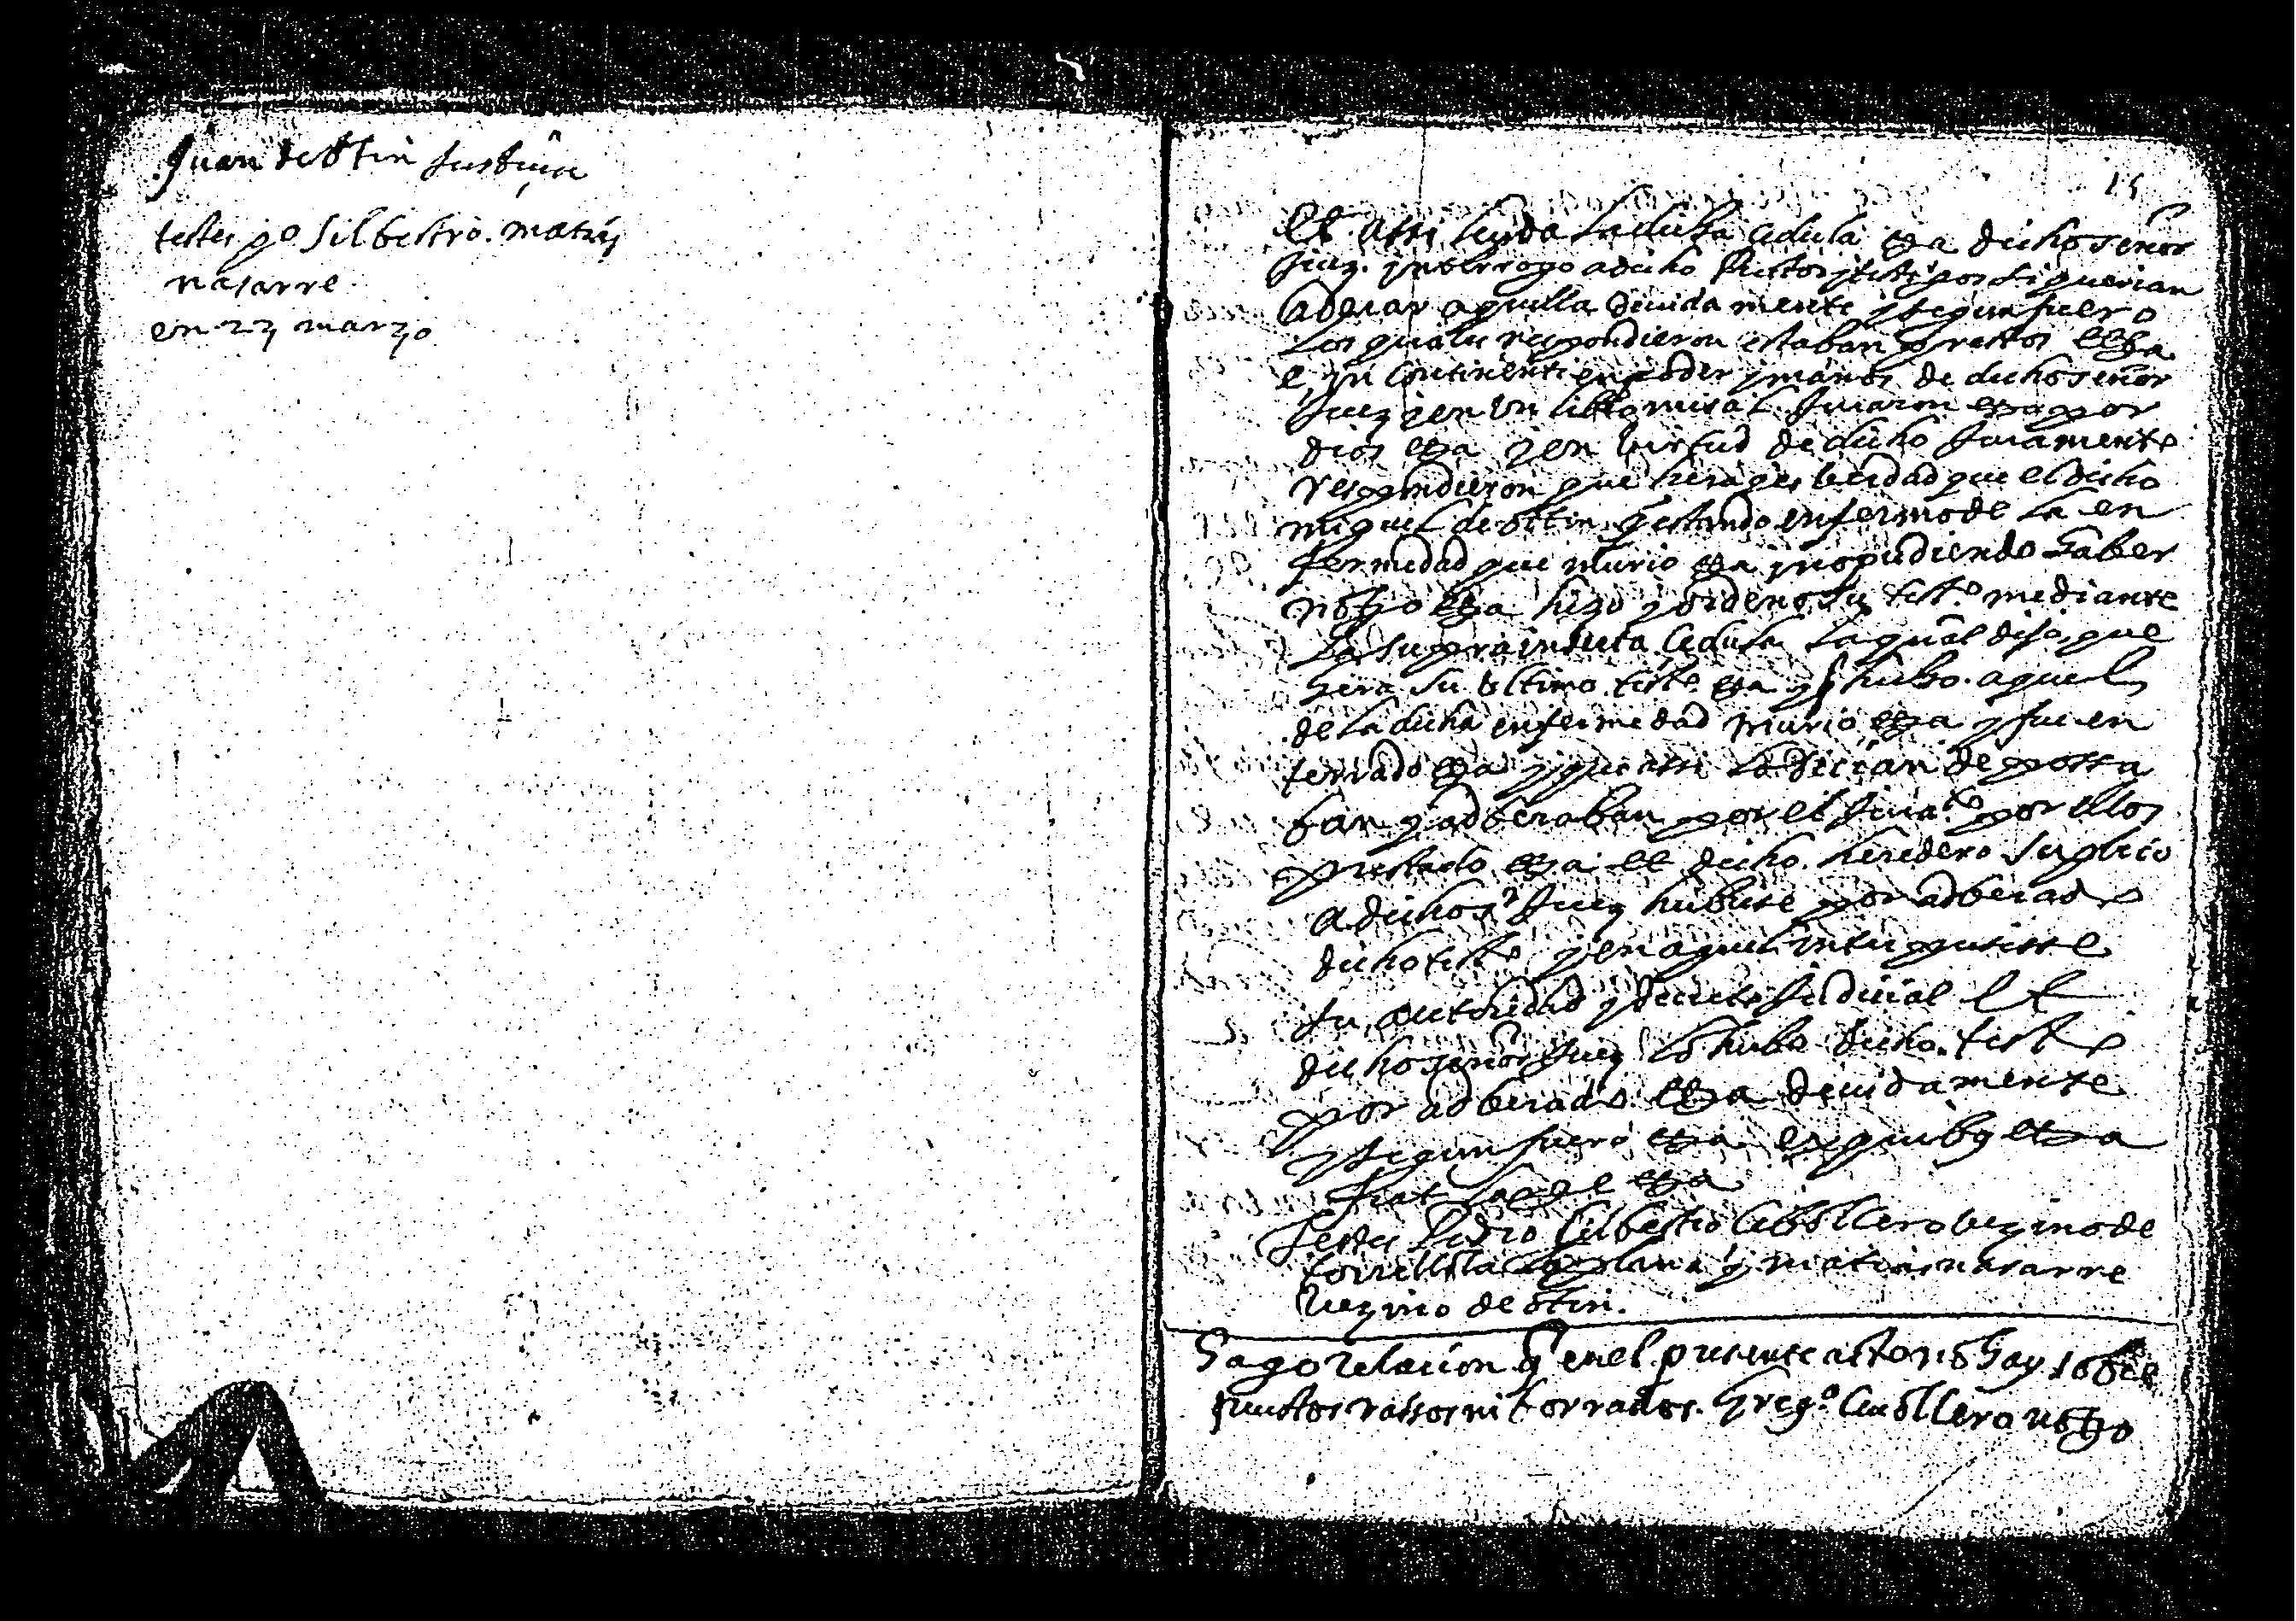 Juan de Otin Justiçia
testes po Silbestro. matias
nasarre
en 23 março
15
Et assi leyda la dicha cedula etza dicho señor
Juez. interrogo a dicho Rector y testigos si querian
adverar aquella deuida mente y segun fuero
los quales respondieron estaban prestos etza
e in continenti en poder y manos de dicho señor
Juez y en un libro misal Juraron etza por
dios etza y en birtud de dicho Juramento
respondieron que hera y es berdad que el dicho
miguel de otin y estando enfermo de la en
fermedad que murio etza y no pudiendo haber
notro etza hizo y ordeno su testo mediante
la suprainserta cedula la qual dijo que
hera su ultimo testo etza y dicho aquel
de la dicha enfermedad murio etza y fue en
terrado etza y que assi lo decian deposa
ban y adberaban por el Jurato por ellos
prestado etza et dicho heredero suplico
a dicho sr Juez hubiese por adberado
dicho testo y en aquel interpusisse
su autoridad y decreto Judicial Et
dicho señor Juez lo hubo dicho testo
por adberado etza deuidamente
y segun fuero etza ex quibus etza
fiat large etza
Testes Pedro Silbestro Cebollero vezino de
torrellola la plana y matias nasarre
vezino de otin.
Hago relacion q en el presente acto no hay sobre
puestos rassos ni borrados. Grego Ceuollero notro